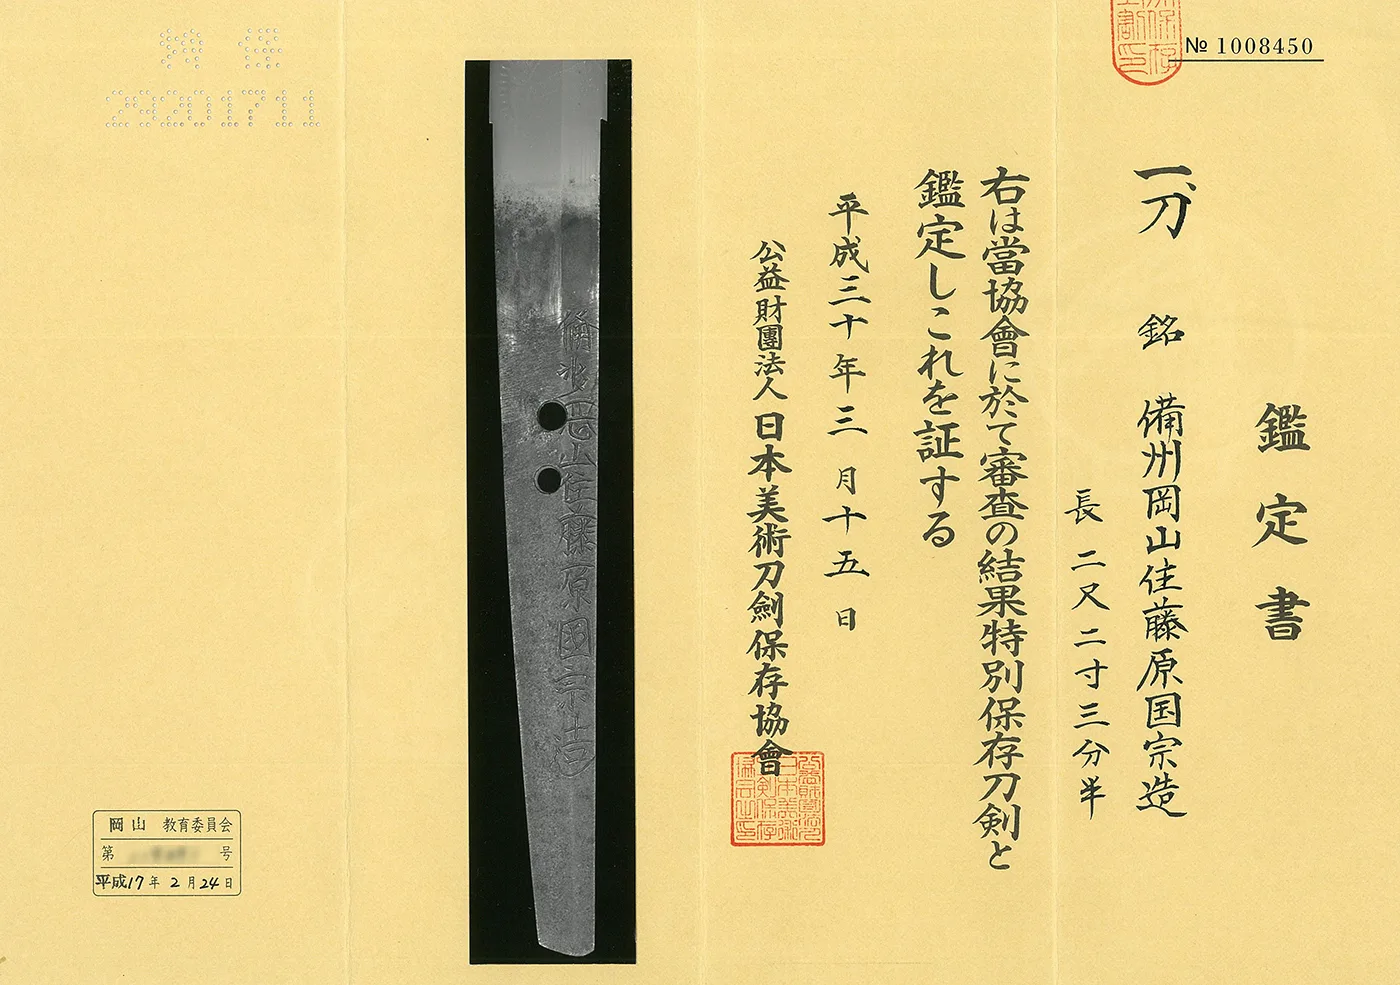 № 1008450
鑑定書
一、刀 銘 備州岡山住藤原国宗造
長 二尺二寸三分半
右は當協會に於て審査の結果特別保存刀剣と
鑑定しこれを証する
平成三十年三月十五日
公益財團法人 日本美術刀劍保存協會
備州岡山住藤原國宗造
29201711
岡山 教育委員会
第 号
平成17年2月24日